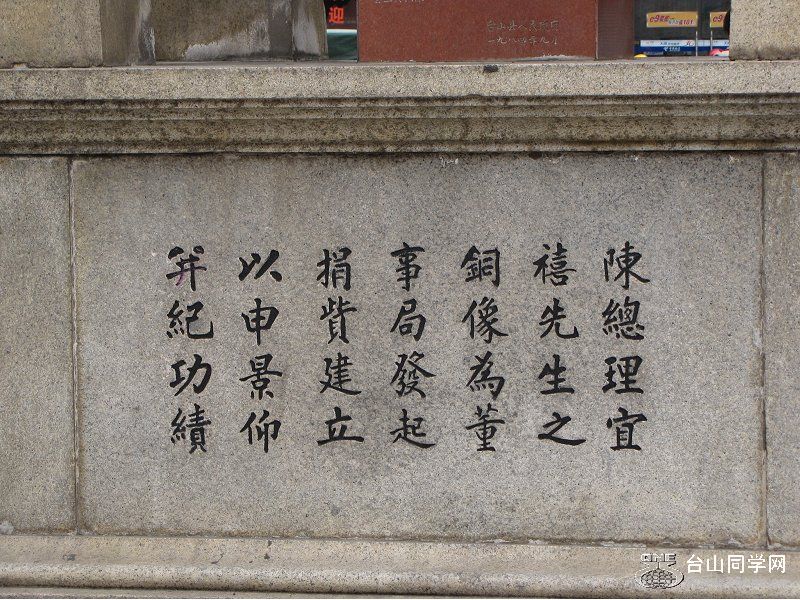 迎
台山县人民政府
一九八四年九月
陳總理宜
禧先生之
銅像為董
事局發起
捐貲建立
以申景仰
并紀功績
台山同学网